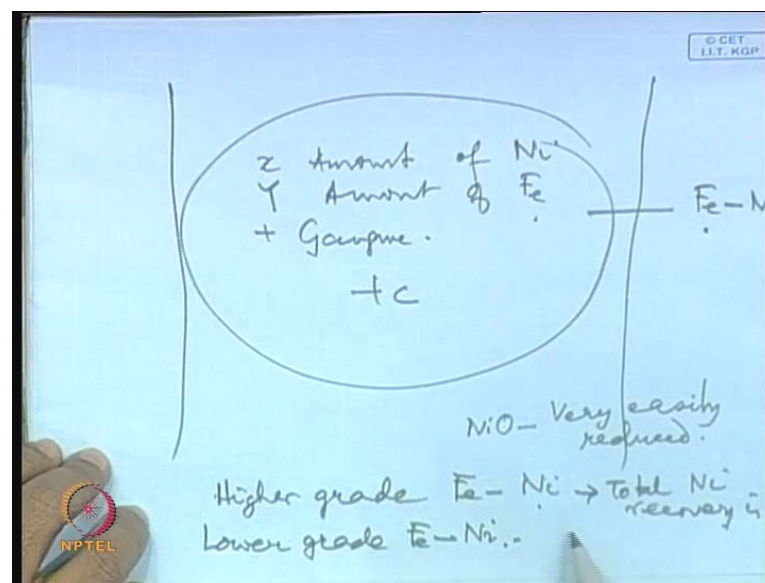 © CET
I.I.T. KGP
x Amount of Ni
Y Amount of Fe
+ Gangue.
+ C
Fe-N
NiO- Very easily
reduced.
Higher grade Fe-Ni → Total Ni
recovery is
Lower grade Fe-Ni.-
NPTEL